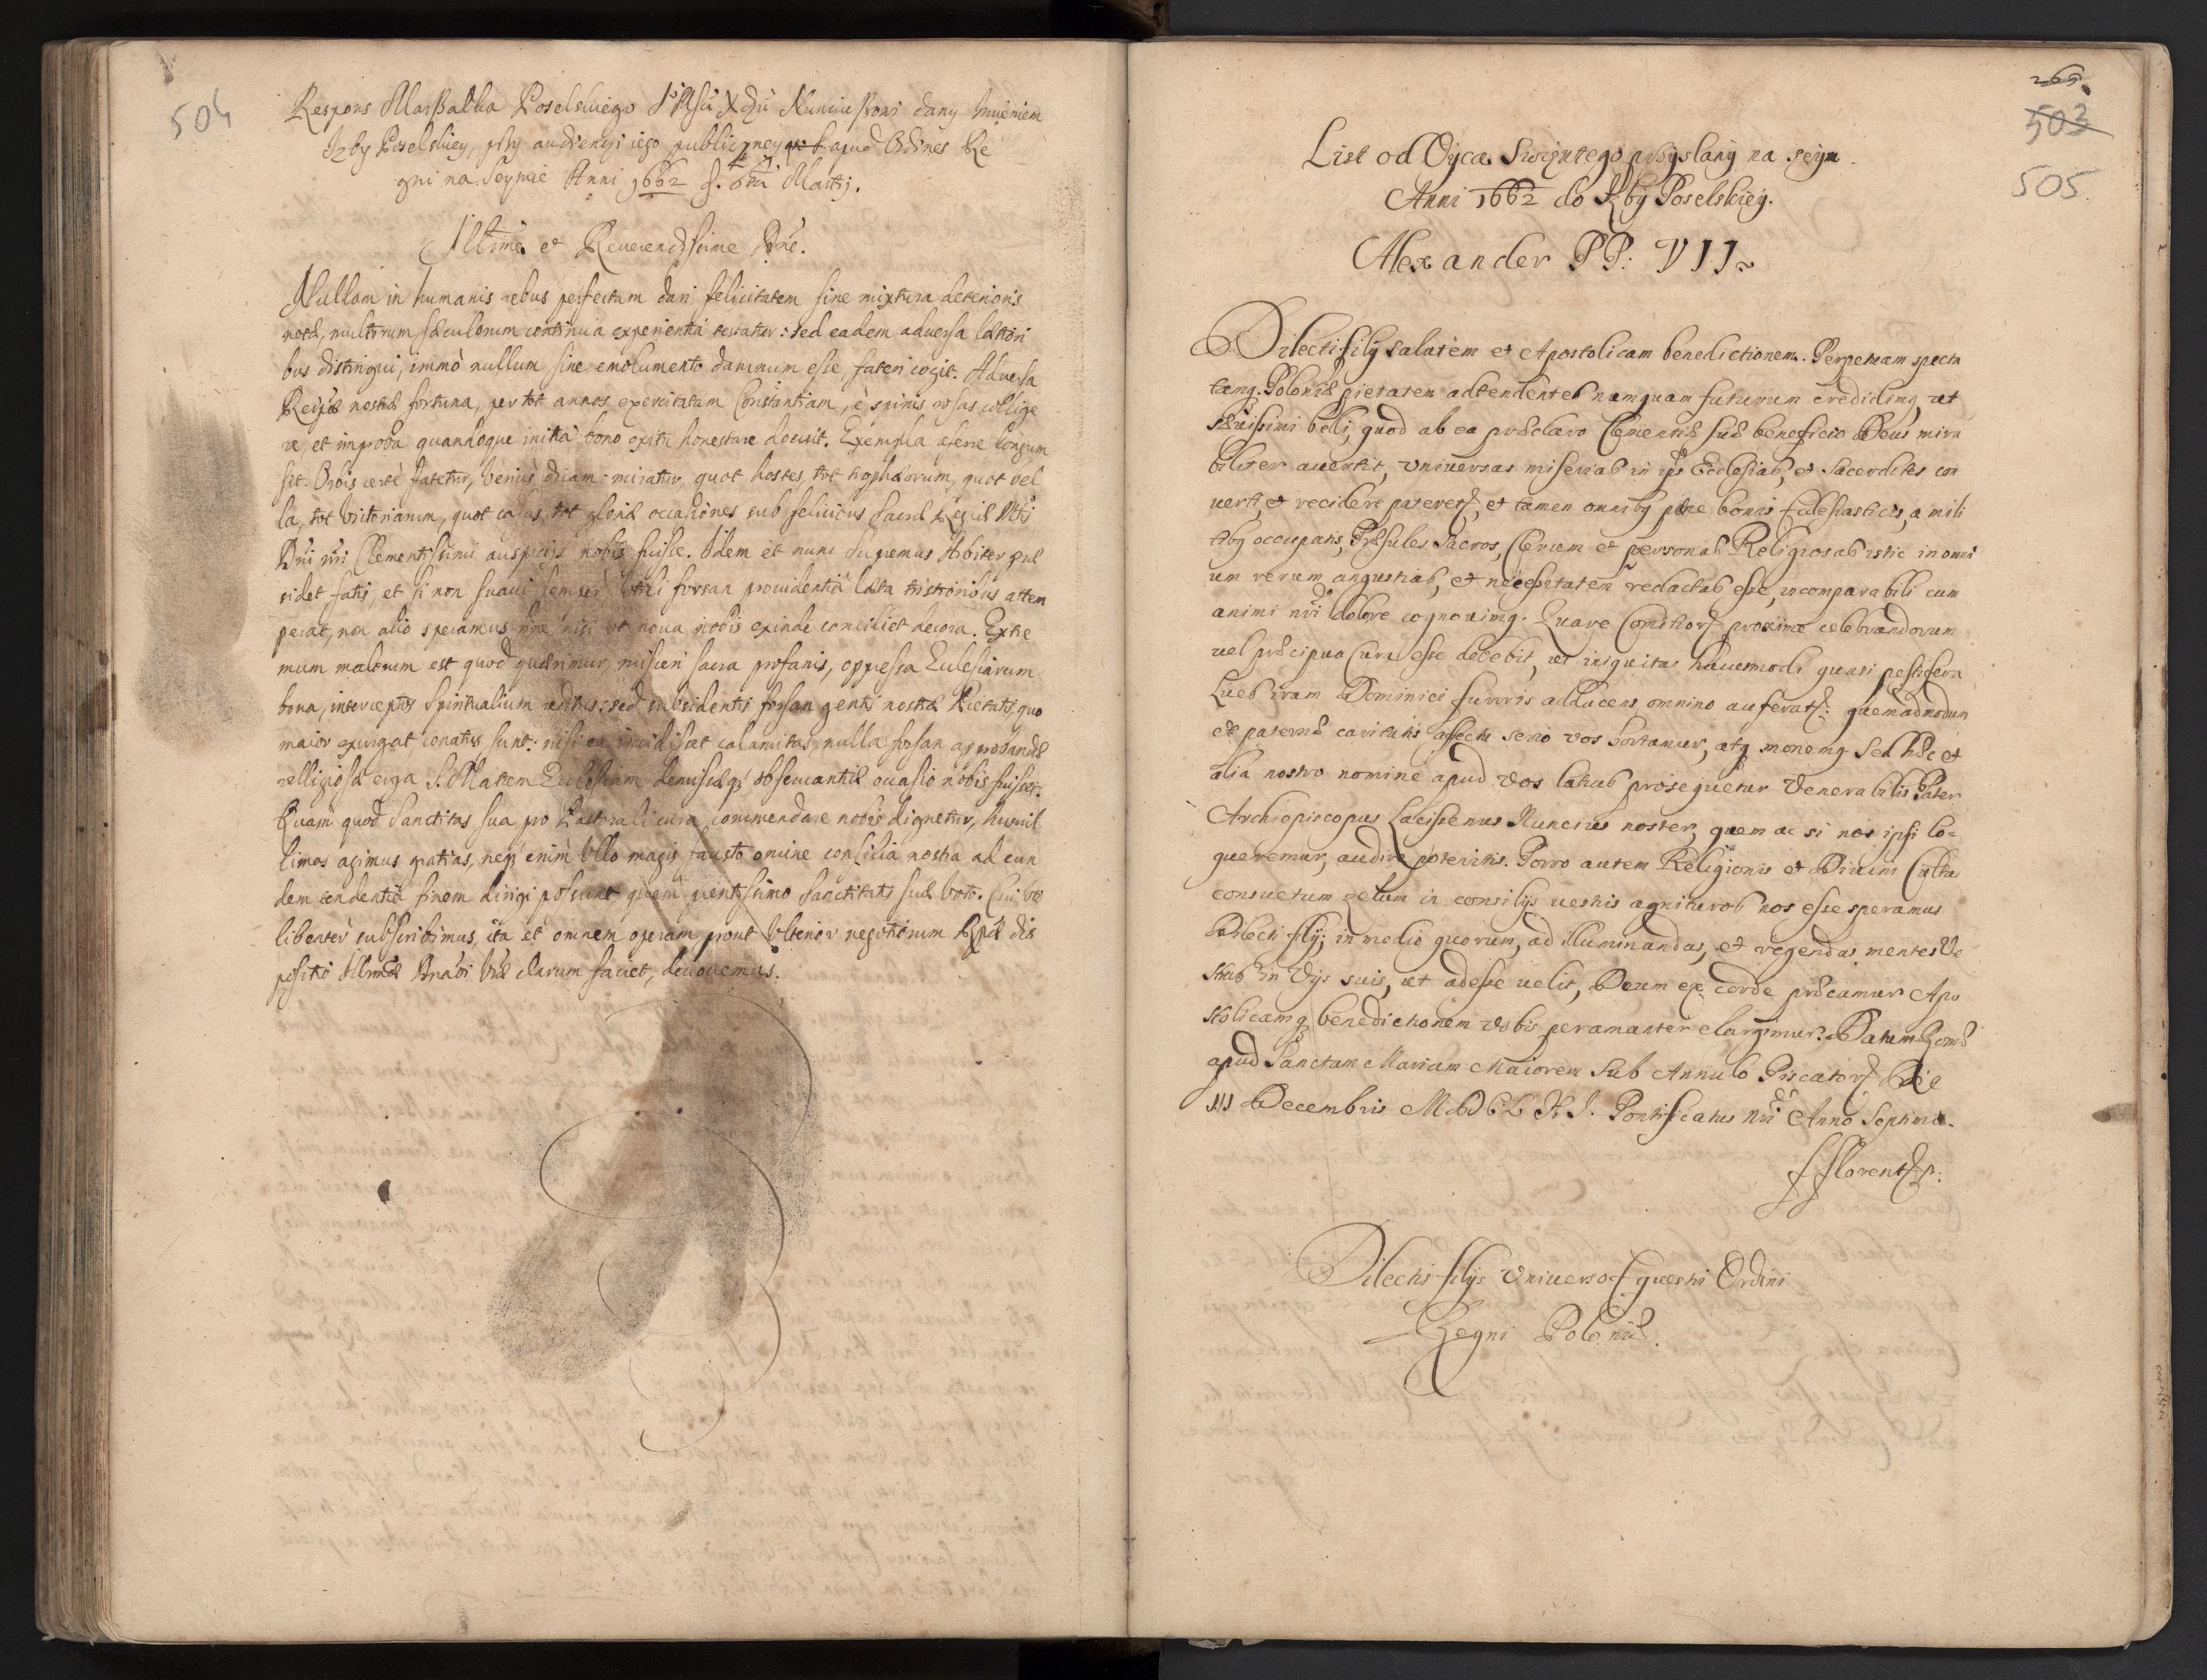 504
Respons Marszałka Poselskiego Jº Msci Xdzu Nunciuszowi dany Imieniem
Izby Poselskiey, przy audiencyi iego publiczney apud Ordines Re
gni na Seymie Anni 1662 d. 6ta Martij.
Illme et Reuerendissime Dne.
Nullam in humanis rebus perfectam dari felicitatem sine mixtura deterioris
notæ, multorum sæculorum continua experientia testatur: sed eadem aduersa lætiori
bus distingui, immò nullum sine emolumento damnum esse fateri cogit. Aduersa
Reipæ nostræ fortuna, per tot annos exercitatam Constantiam, è spinis rosas collige
re, et improba quandoque initia bono exitu honestare docuit. Exempla referre longum
sit. Orbis certè fatetur, verius dicam miratur, quot hostes, tot trophæorum, quot bel
la, tot victoriarum, quot casus, tot gloriæ occasiones sub felicibus Sacræ Regiæ Mtis
Dni nri Clementissimi auspicijs nobis fuisse. Idem et nunc Supremus Arbiter præ
sidet fatis, et si non suaui semper, vtili forsan prouidentiâ læta tristioribus attem
perat, non alio speramus fine nisi vt noua nobis exinde conciliet decora. Extre
mum malorum est quod quærimur, misceri sacra profanis, oppressa Ecclesiarum
bona, interceptos Spiritualium reditus: sed subsidentis forsan gentis nostræ Pietatis, quo
maior exurgat, conatus sunt: nisi ea incidisset calamitas, nulla forsan approbandæ
relligiosæ erga S. Matrem Ecclesiam demissæq obseruantiæ occasio nobis fuisset.
Quam quod Sanctitas sua pro Pastorali cura commendare nobis dignetur, humil
limas agimus gratias, neq enim vllo magis fausto omine consilia nostra ad eun
dem tendentia finem dirigi possunt quàm pientissimo Sanctitatis suæ voto. Cui vti
libenter subscribimus, ita et omnem operam, prout vlterior negotiorum Rpcæ dis
positio Illmæ Dnaoi Vræ clarum faciet, deuouemus.
265.
503
505.
List od Oyca Swiętego przysłany na seym
Anni 1662 do Izby Poselskiey.
Alexander PP: VII
Dilecti filij salutem et Apostolicam benedictionem. Perpetuam specta
tamq. Poloniæ pietatem adtendentes numquam futurum credidimq, ut
sæuissimi belli, quod ab ea præclaro Clementiæ suæ beneficio Deus mira
biliter auertit, vniuersas miserias in ips Ecclesias, et Sacerdotes con
uerti, et recidere pateretr, et tamen omnibq pene bonis Ecclesiasticis, a mili
tibq occupatis, Præsules Sacros, Clerum et personas Religiosas istic in omni
um rerum angustias, et necessitatem redactas esse, incomparabili cum
animi nri dolore cognouimq. Quare Comitior proxime celebrandorum
uel præcipua Cura esse debebit, ut iniquitas huiusmodi quasi pestifera
Lues iram Dominici furoris adducens omnino auferatr: quemadmodum
et paternæ caritatis affectu serio vos hortamur, atq monemq. Sed hæc et
alia nostro nomine apud vos latius prosequetur Venerabilis Pater
Archiepiscopus Larissenus Nuncius noster, quem ac si nos ipsi lo=
queremur, audire poteritis. Porro autem Religionis et Diuini Cultus
consuetum zelum in consilijs uestris agnituros nos esse speramus
Dilecti filij; in medio quorum, ad illuminandas, et regendas mentes Ve
stras in Vijs suis, ut adesse uelit, Deum ex corde præcamur Apo
stolicamq benedictionem vobis peramanter elargimur. Datum Romæ
apud Sanctam Mariam Maiorem Sub Annulo Piscator Die
III Decembris MDCLXI. Pontificatus nri Anno Septimo.
f florent p:
Dilectis filijs Vniuerso Equestri Ordini
Regni Poloniæ.